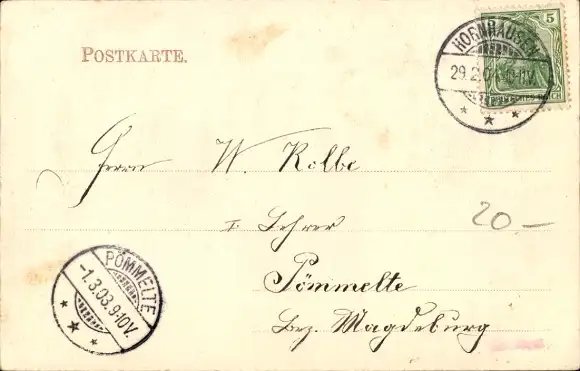 POSTKARTE.
HORNHAUSEN
29.2.0
10-11V.
5
Herrn W. Kolbe
Lehrer
20.-
Pömmelte
Bez. Magdeburg
PÖMMELTE
-1.3.03.9-10V.